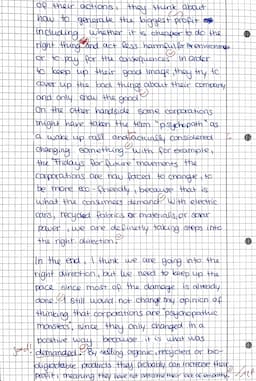 of their actions, they think about
how to generate the biggest profit
including whether it is cheaper to do the
right thing and act less harmful for
or to pay for the consequences. In order
to keep up their good image, they try to
cover up the bad things about their company
and only show the good.
On the other handside some corporations
might have taken the "psychopath" as
a wake up call and actually considered
changing something. With for example,
the "Fridays for future" movements the
corporations are now forced to change, to
be more eco-friendly, because that is
what the consumers demand. With electric
cars, recycled fabrics or materials, or solar
power, we are definetly taking steps into
the right direction.
In the end, I think we are going into the
right direction, but we need to keep up the
pace since most of the damage is already
done. I still would not change my opinion of
thinking that corporations are psychopathic
monsters, since they only changed in a
positive way because it is what was
demanded. By selling organic, recycled or bio-
products they probably can increase their
profit, meaning they